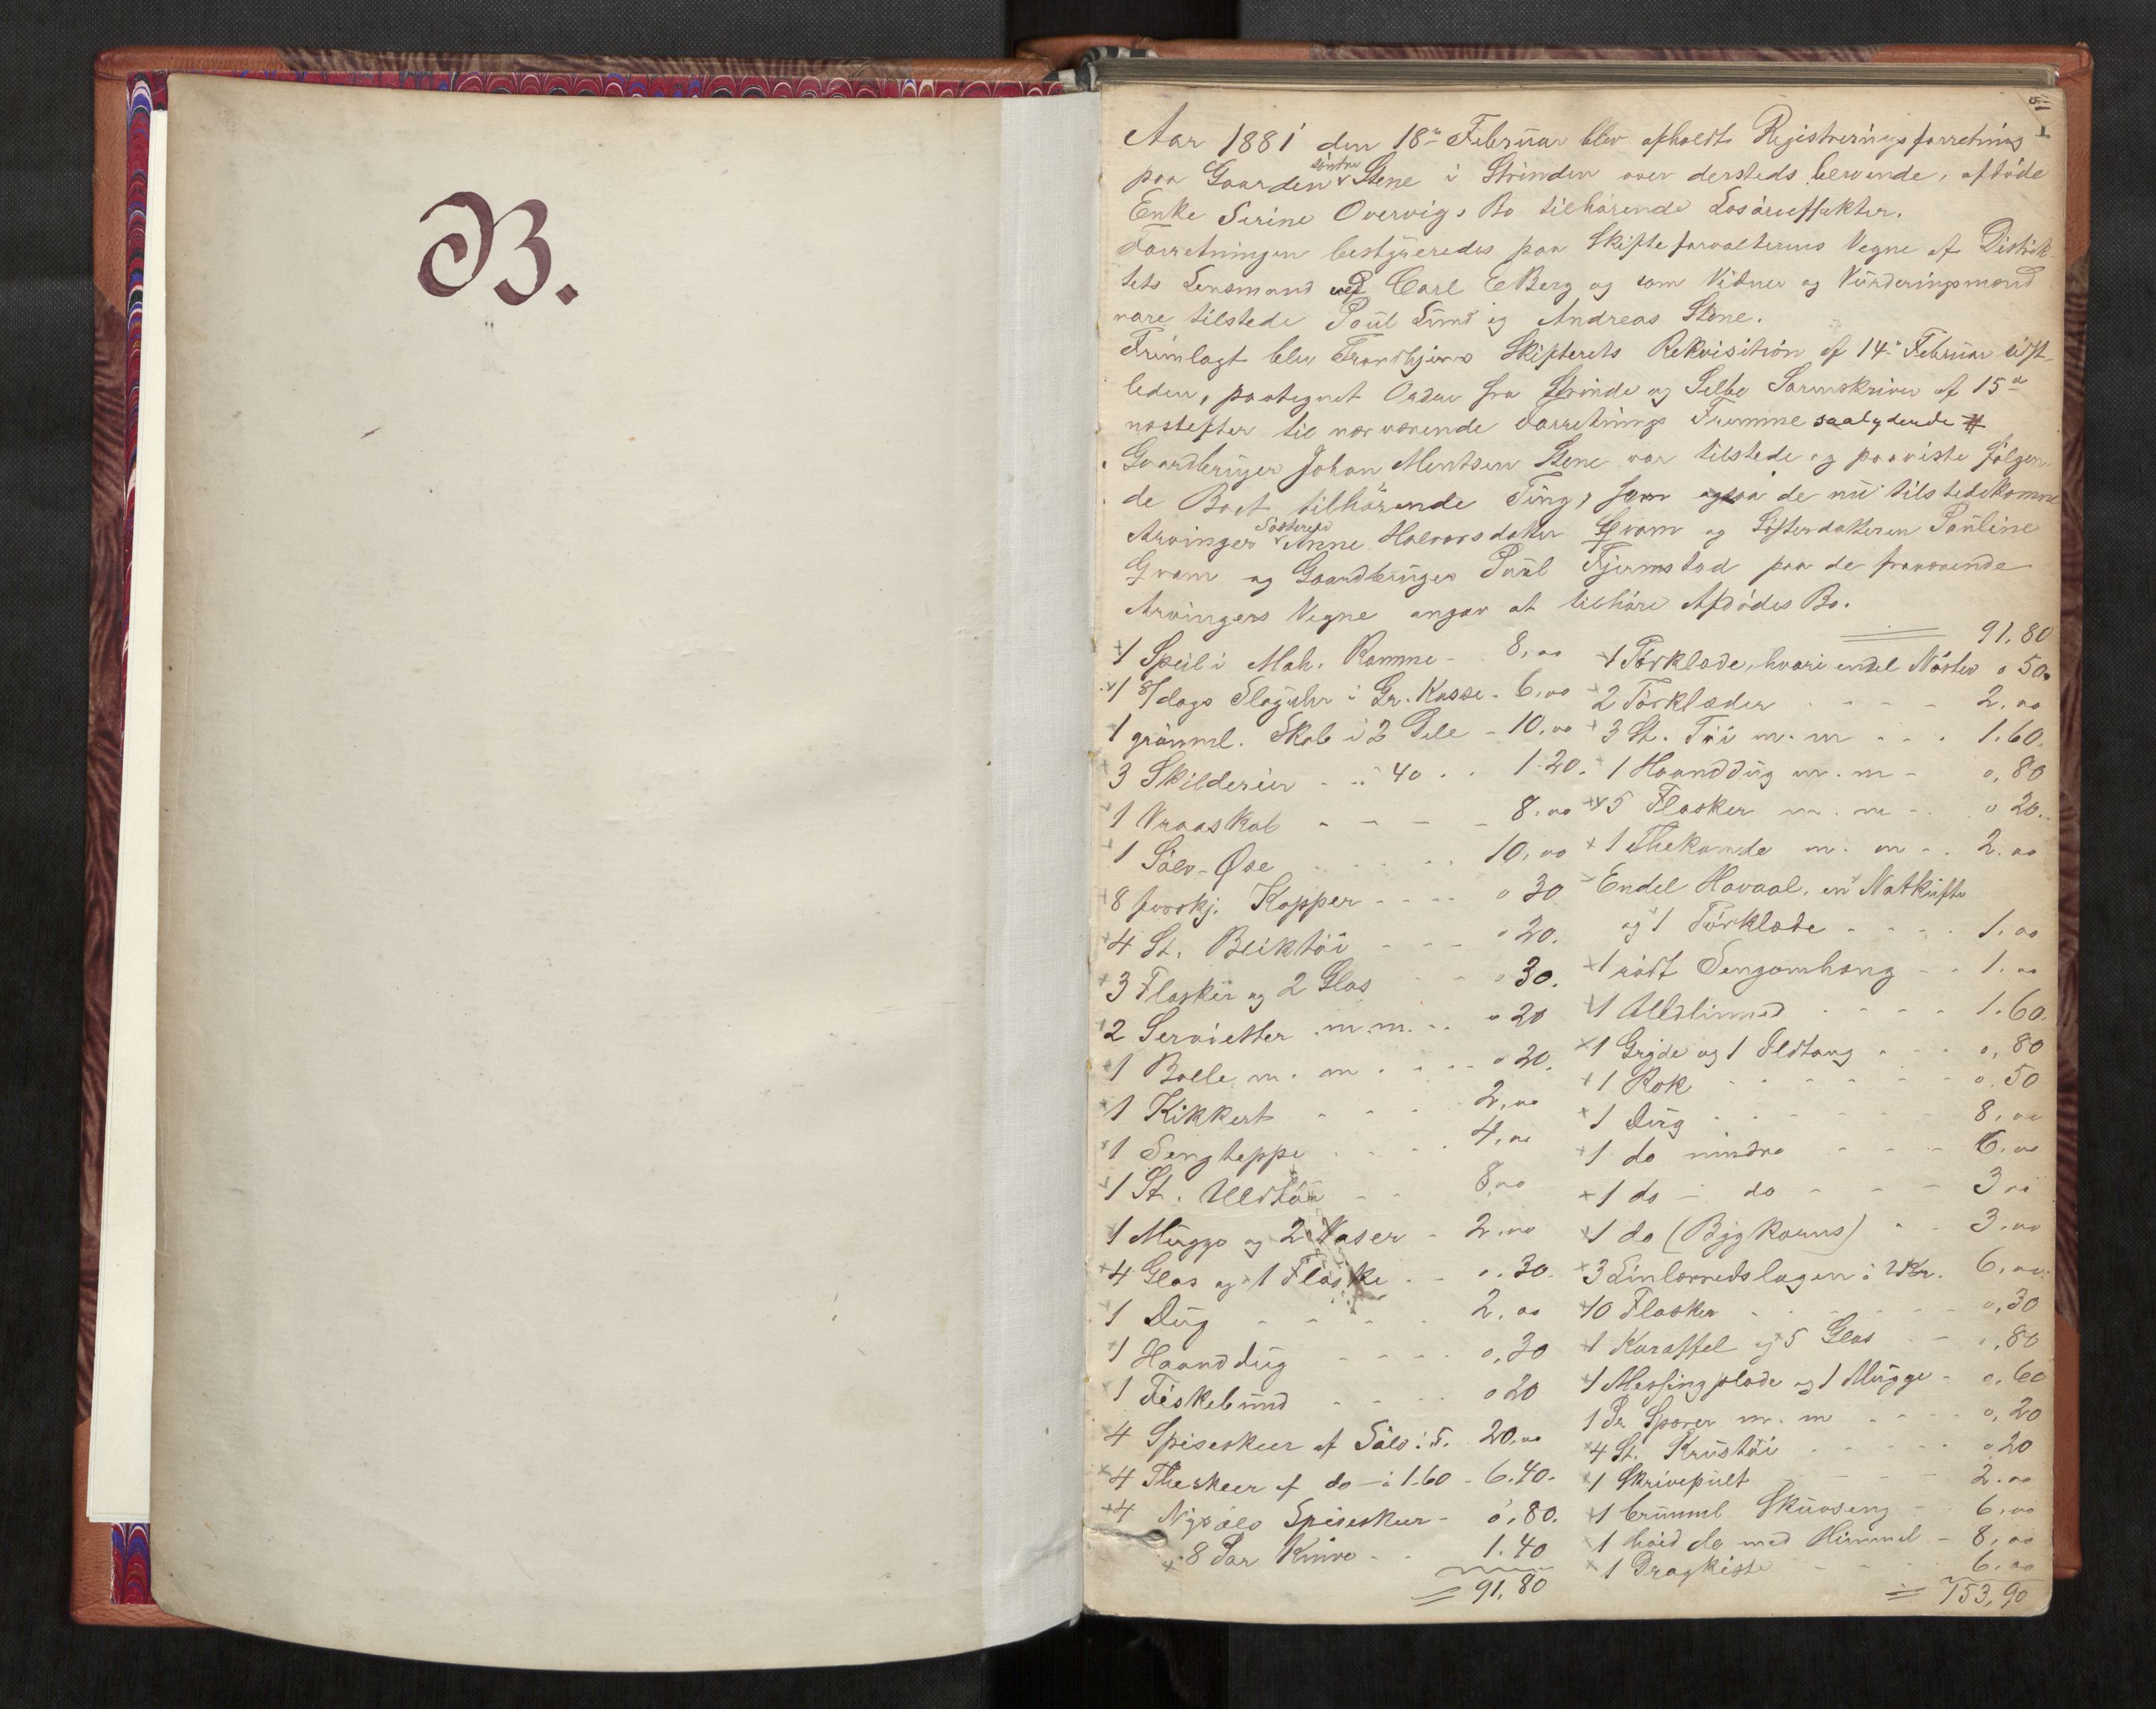 B.
Aar 1881 den 18de Februar blev afholdt Registreringsforretning
paa Gaarden søndre Stene i Strinden over dersteds beroende, afdøde
Enke Serine Overvigs Bo tilhørende Løsøreeffekter.
Forretningen bestyreredes paa Skifteforvalterens Vegne af Distrik-
tets Lensmand ved Carl E Berg og som Vidner og Vurderingsmænd
vare tilstede Paul Lund og Andreas Stene.
Fremlagt blev Trondhjems Skifterets Rekvisition af 14de Februar sidst-
leden, paategnet Ordre fra Strinde og Selbo Sorenskriver af 15de
næstefter til nærværende Forretnings Fremme saalydende #
Gaardbruger Johan Mentsen Stene var tilstede og paaviste følgen-
de Boet tilhørende Ting, som ogsaa de nu tilstedekomne
Arvinger Søsteren Anne Halvorsdatter Gram og Søsterdatteren Pauline
Gram og Gaardbruger Paul Fjermstad paa de fraværende
Arvingers Vegne angav at tilhøre Afdødes Bo.
1 Speil i Mah. Ramme - 8,00
1 8/dags Slaguhr i Gr. Kasse - 6,00
1 grønml. Skab i 2 Dele - 10,00
3 Skilderier - à 40 . . 1.20.
1 Vraaskab - - - - 8.00
1 Sølv-Øse . . . . 10,00
8 forskj. Kopper - - - - 0 30
4 St. Bliktøi - - - 0 20.
3 Flasker og 2 Glas - - 0 30.
2 Servietter m.m. . . 0 20
1 Bolle m. m . . . . 0 20.
1 Kikkert - - - - 2,00
1 Sengteppe . . . . 4,00
1 St. Uldtøi - - 8,00
1 Mugge og 2 Vaser - 2.00
4 Glas og 1 Flaske . - 0.30.
1 Dug - - - - . 2,00
1 Haanddug - - - - 0,30
1 Fiskebund - - - . 0 20
4 Spiseskeer af Sølv: 5. 20,00
4 Theskeer af do - à 1.60 - 6.40.
4 Nysølv Spiseskeer - 0,80.
8 Par Knive - . 1.40
= 91,80
91,80
1 Tørklæde, hvori endel Nøster 0 50.
2 Tørklæder . - - - 2,00
3 St. Tøi m. m . . . 1.60.
1 Haanddug m. m - 0,80
5 Flasker m. m - . 0 20..
1 Thekande m. m - . 2.00
Endel Havaal, en Natkufte
og 1 Tørklæde - - - . 1.00
1 rødt Sengomhæng - - 1.00
1 Uldlinned . - - - 1.60.
1 Gryde og 1 Ildtang . - . 0,80
1 Rok - - - - - - 0.50
1 Dug . - - - - - - 8,00
1 do mindre - - - - 6.00
1 do - do - - - - 3 00
1 do (Bygkorns) - - 3.00
3 Linlærredslagen à 2 Kr. 6,00.
10 Flasker - - - - - - 0,30
1 Karaffel og 5 Glas . - 0,80
1 Messingplade og 1 Mugge - 0.60
1 Pr Sporer m. m . - - - 0,20
4 St. Krustøi - - - - - 0 20
1 Skrivepult - - - - 2.00
1 brunml Skuvseng - 6.00
1 hvid do med Himmel - 8,00
1 Dragkiste - - - 6.00
= 153,90